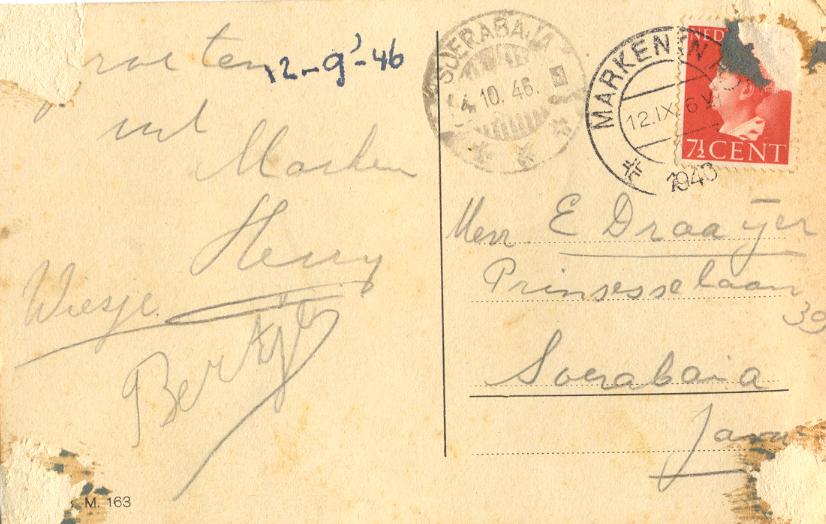 12-9-'46
uit
Marken
Henny
Wiesje
Bertje
M. 163
SOERABAJA
4.10.46.
MARKEN
12.IX
194
NED
7½ CENT
E Draayer
Prinsesselaan
39
Soerabaia
Java